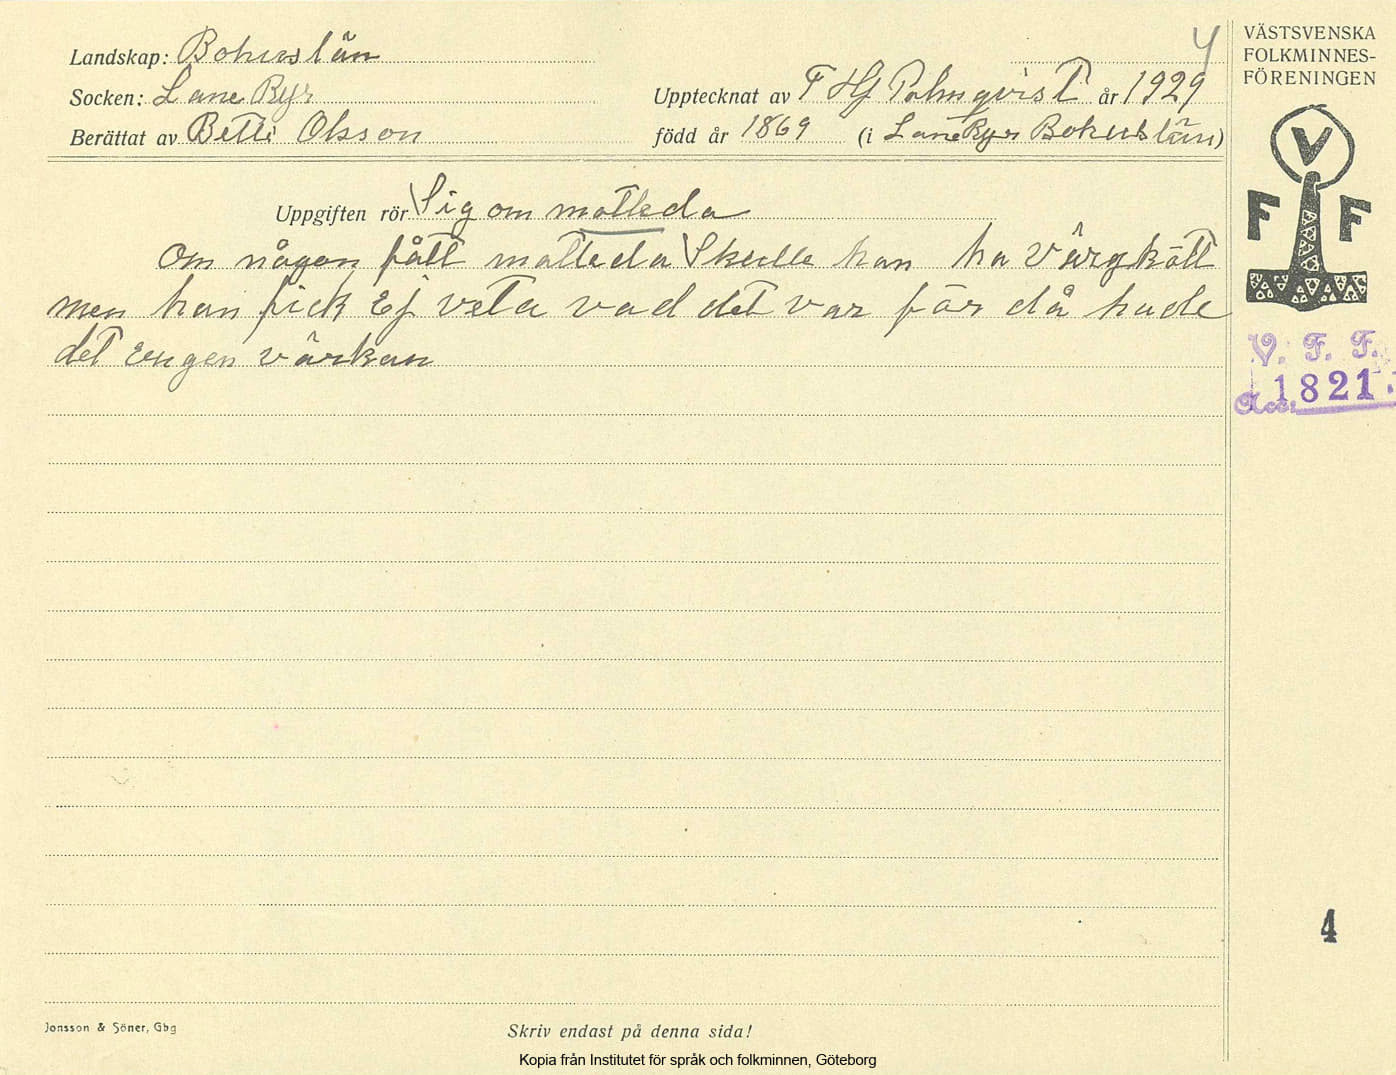 Landskap: Bohuslän
4
Socken: Lane Ryr
Upptecknat av F Hj Palmqvist år 1929
Berättat av Betti Olsson
född år 1869 (i Lane Ryr Bohuslän)
Uppgiften rör Sig om matleda
Om någon fått matleda Skulle han ha Vårgkött
men han fick Ej veta vad det var för då hade
det Engen värkan
VÄSTSVENSKA
FOLKMINNES-
FÖRENINGEN
V
F F
V. F. F.
Acc: 1821
4
Jonsson & Söner, Gbg
Skriv endast på denna sida!
Kopia från Institutet för språk och folkminnen, Göteborg